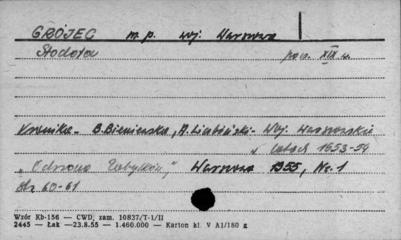 GRÓJEC m. p. woj. Warszawa
Stodoła pocz. XIX w.
Kronika - B. Bieniewska, A. Liubiński - Woj. Warszawskie
w latach 1953-54
"Ochrona Zabytków," Warszawa 1955, Nr. 1
str. 60-61
Wzór Kb-156 — CWD, zam. 10837/T-1/II
2445 — Łak —23.8.55 — 1.460.000 — Karton kl. V A1/180 g